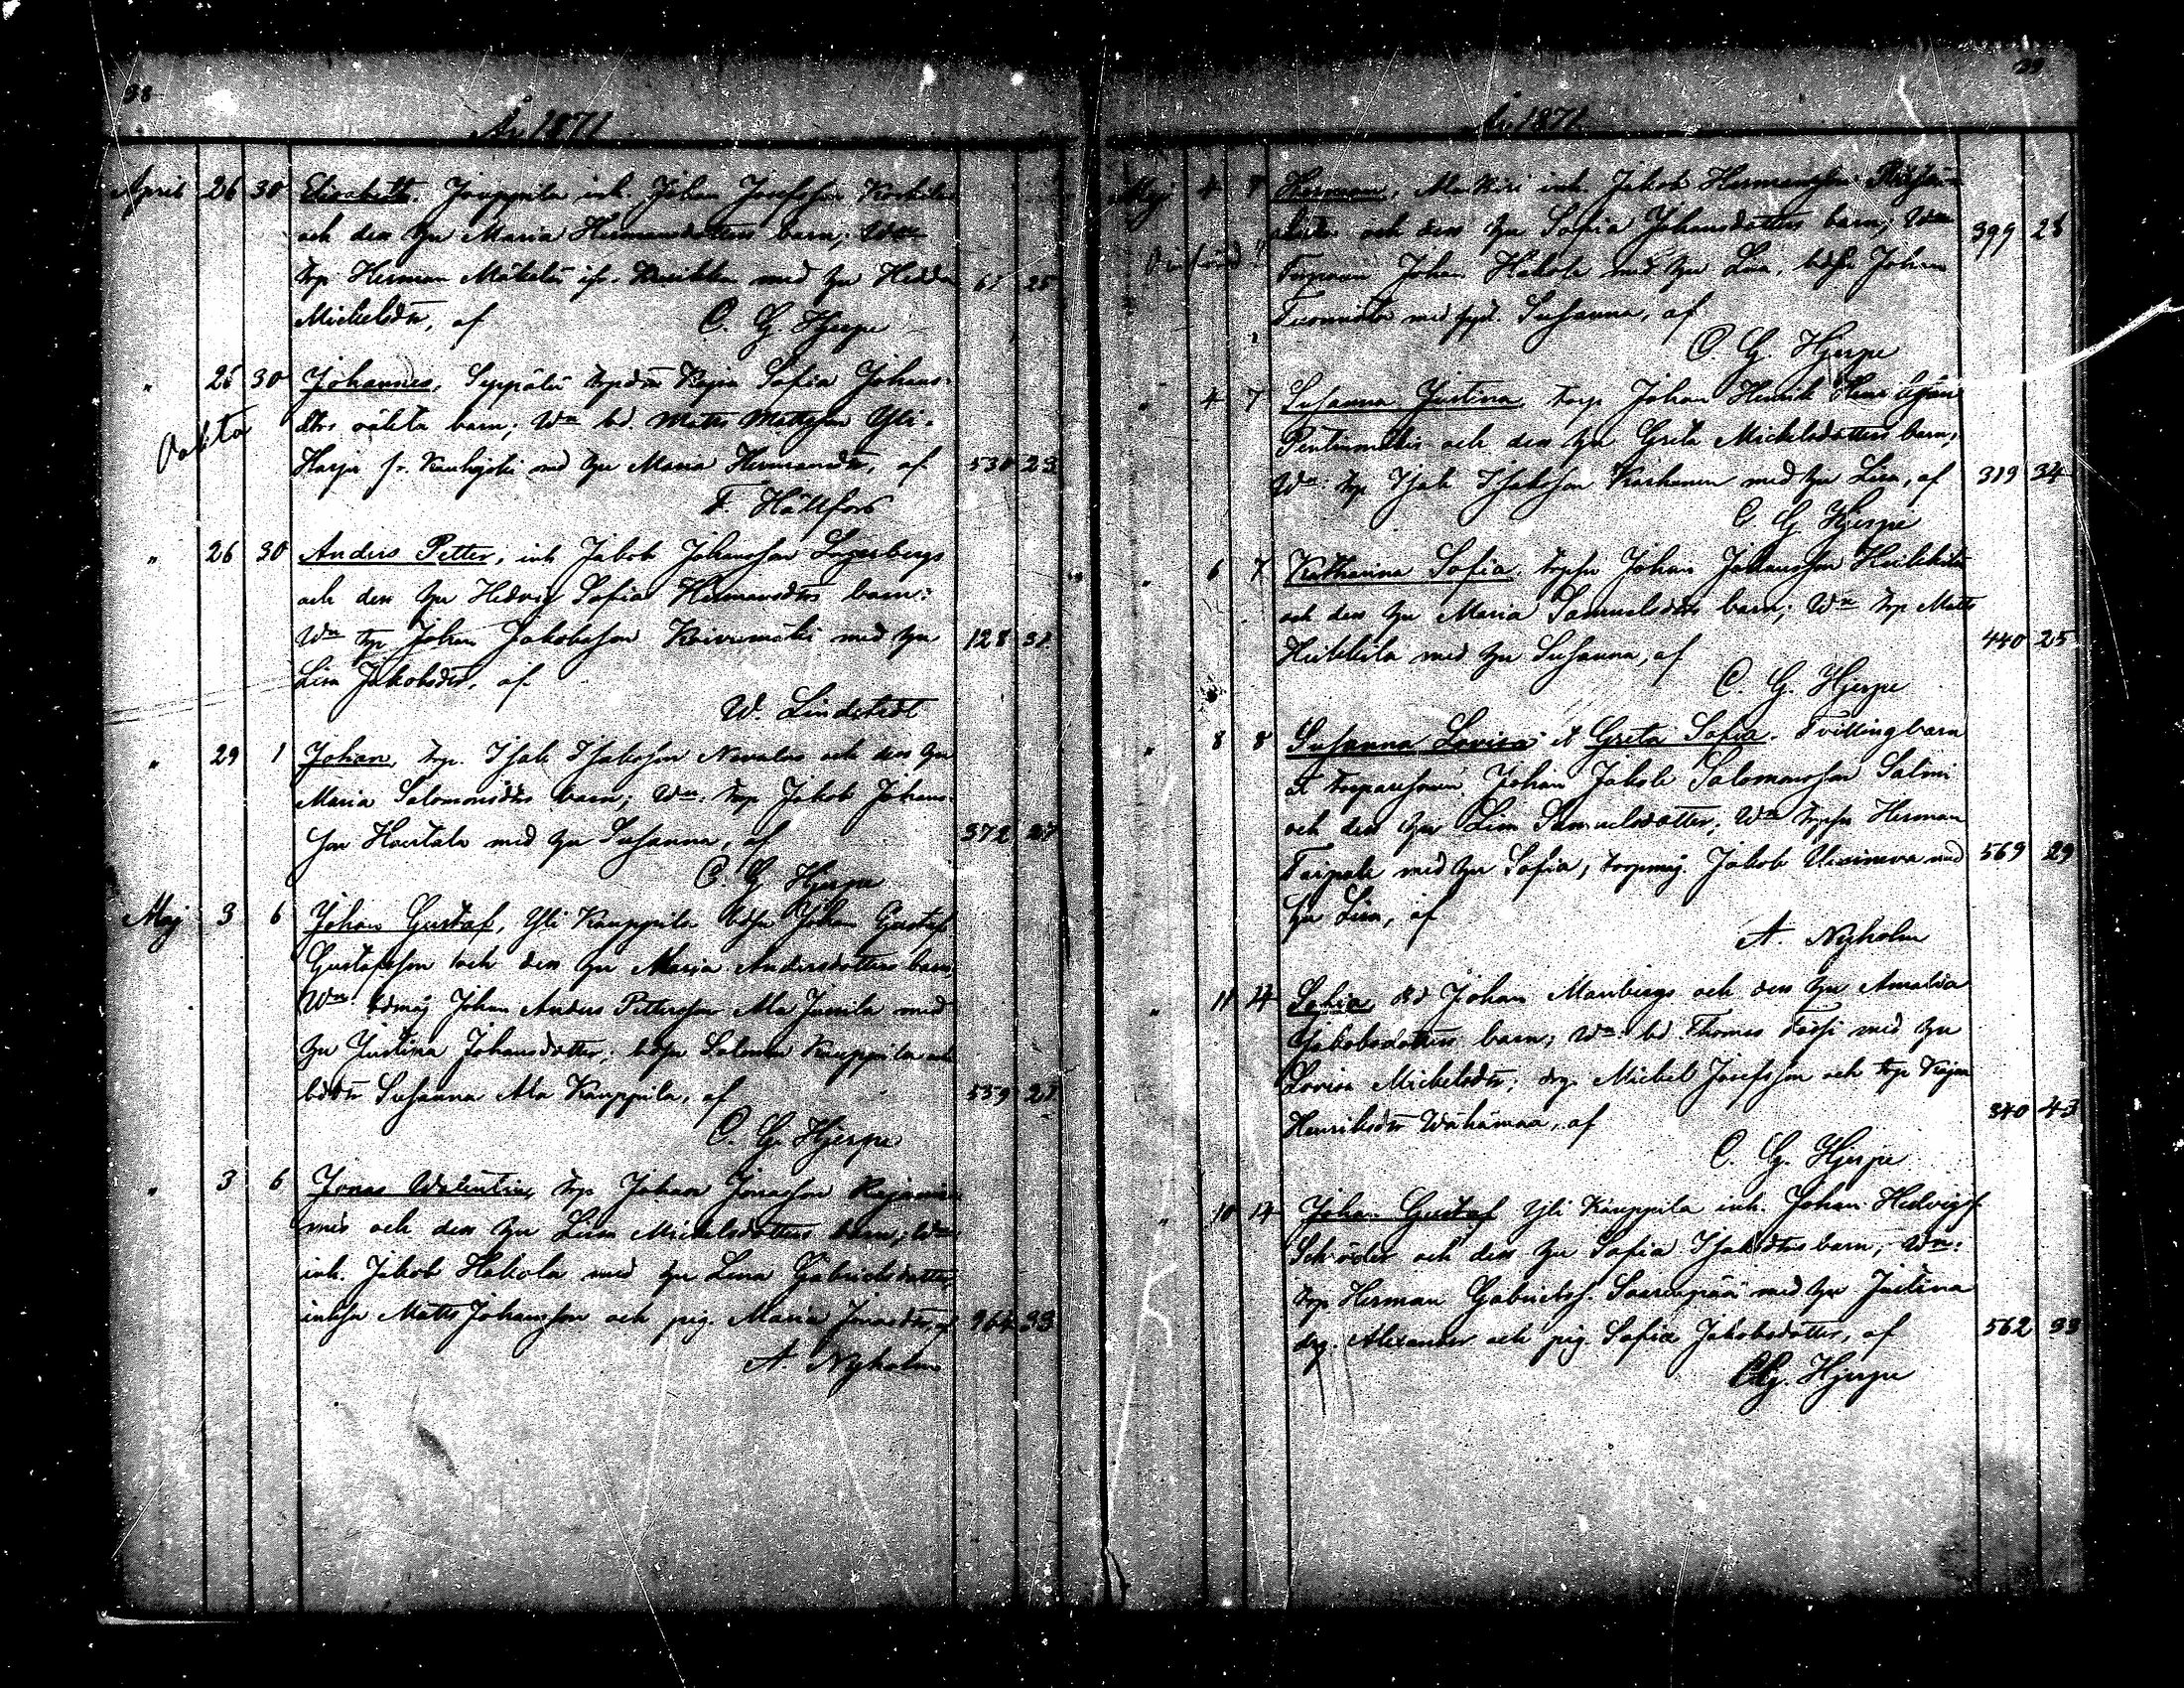 38
År 1871
April 26 30 Elisabeth, Jouppila inh. Johan Josefsson Koskela
och dess hu Maria Hermansdotters barn; Wn
trp Herman Mäkelä ifr. med hu Hedda 61 25
Michelsdtr, af C. G. Hjerpe
" 26 30 Johannes, Seppälä trpdtr Kajsa Sofia Johans-
Oäkta dtrs oäkta barn; Wn bd. Matts Mattsson Yli-
Harju fr. Kauhajoki med hu Maria Hermansdtr, af 530 23
F. Hällfors
" 26 30 Anders Petter, inh Jakob Johansson Lagerbergs
och dess hu Hedvig Sofia Hermansdtrs barn:
Wn trp Johan Jakobsson Koivumäki med hu 128 31
Lisa Jakobsdtr, af
W. Lindstedt
" 29 1 Johan, trp. Isak Isaksson Nevalas och dess hu
Maria Salomonsdtrs barn; Wn: trp Jakob Johans-
son Hautala med hu Susanna, af 372 27
C. G. Hjerpe
Maj 3 6 Johan Gustaf, Yli Kauppila bdsn Johan Gustaf
Gustafsson och dess hu Maria Andersdotters barn,
Wn: bdmåg Johan Anders Pettersson Ala Jussila med
hu Justina Johansdotter; bdsn Salomon Kauppila och
bddtr Susanna Ala Kauppila, af 559 27
C. G. Hjerpe
" 3 6 Jonas Walentin, trp Johan Jonasson
och dess hu Lisa Michelsdotters barn; Wn
inh. Jakob Hakola med hu Lena Gabrielsdotter,
inhsn Matts Johansson och pig. Maria Jonasdtr, af 264 33
A. Nyholm
39
År 1871
Maj 4 7 Herman, Ala Kiri inh. Jakob Hermansson
och dess hu Sofia Johansdotters barn; Wn 399 28
Torparen Johan Hakola med hu Lisa, bdsn Johan
Tuomisto med syst. Susanna, af
C. G. Hjerpe
" 4 7 Susanna Justina, torp Johan Henrik
Pentinmäkis och dess hu Greta Michelsdotters barn,
Wn: trp Isak Isaksson Karhunen med hu Lisa, af 319 34
C G Hjerpe
" 6 7 Katharina Sofia, trpsn Johan Johansson Heikkilä
och dess hu Maria Samuelsdtrs barn; Wn trp Matts
Heikkila med hu Susanna, af 440 25
C. G. Hjerpe
" 8 8 Susanna Lovisa & Greta Sofia. Tvillingbarn
t. torparesonen Johan Jakob Salomonsson Salmi
och dess hu Lisa Samuelsdotter; Wn trpsn Herman
Taipale med hu Sofia, torpmåg Jakob Uusineva med 569 29
hu Lisa, af
A. Nyholm
" 11 14 Sofia, bd Johan Manbergs och dess hu Amalia
Jakobsdotters barn; Wn: bd Thomas Fossi med hu
Lovisa Michelsdtr; drg. Michel Josefsson och trp Kajsa
Henriksdtr Wähämaa, af 340 43
C. G. Hjerpe
" 10 14 Johan Gustaf Yli Kauppila inh. Johan Hedvigsf.
Schröder och dess hu Sofia Isaksdtrs barn, Wn:
trp Herman Gabrielss. Saarenpää med hu Justina
drg. Alexander och pig. Sofia Jakobsdotter, af 562 33
C G. Hjerpe